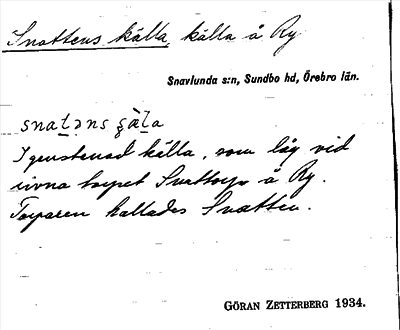 Snattens källa, källa å Ry
Snavlunda s:n, Sundbo hd, Örebro län.
snat̲əns
Igenstenad källa, som låg vid
rivna torpet Snattorp å Ry.
Torparen kallades Snatten.
GÖRAN ZETTERBERG 1934.